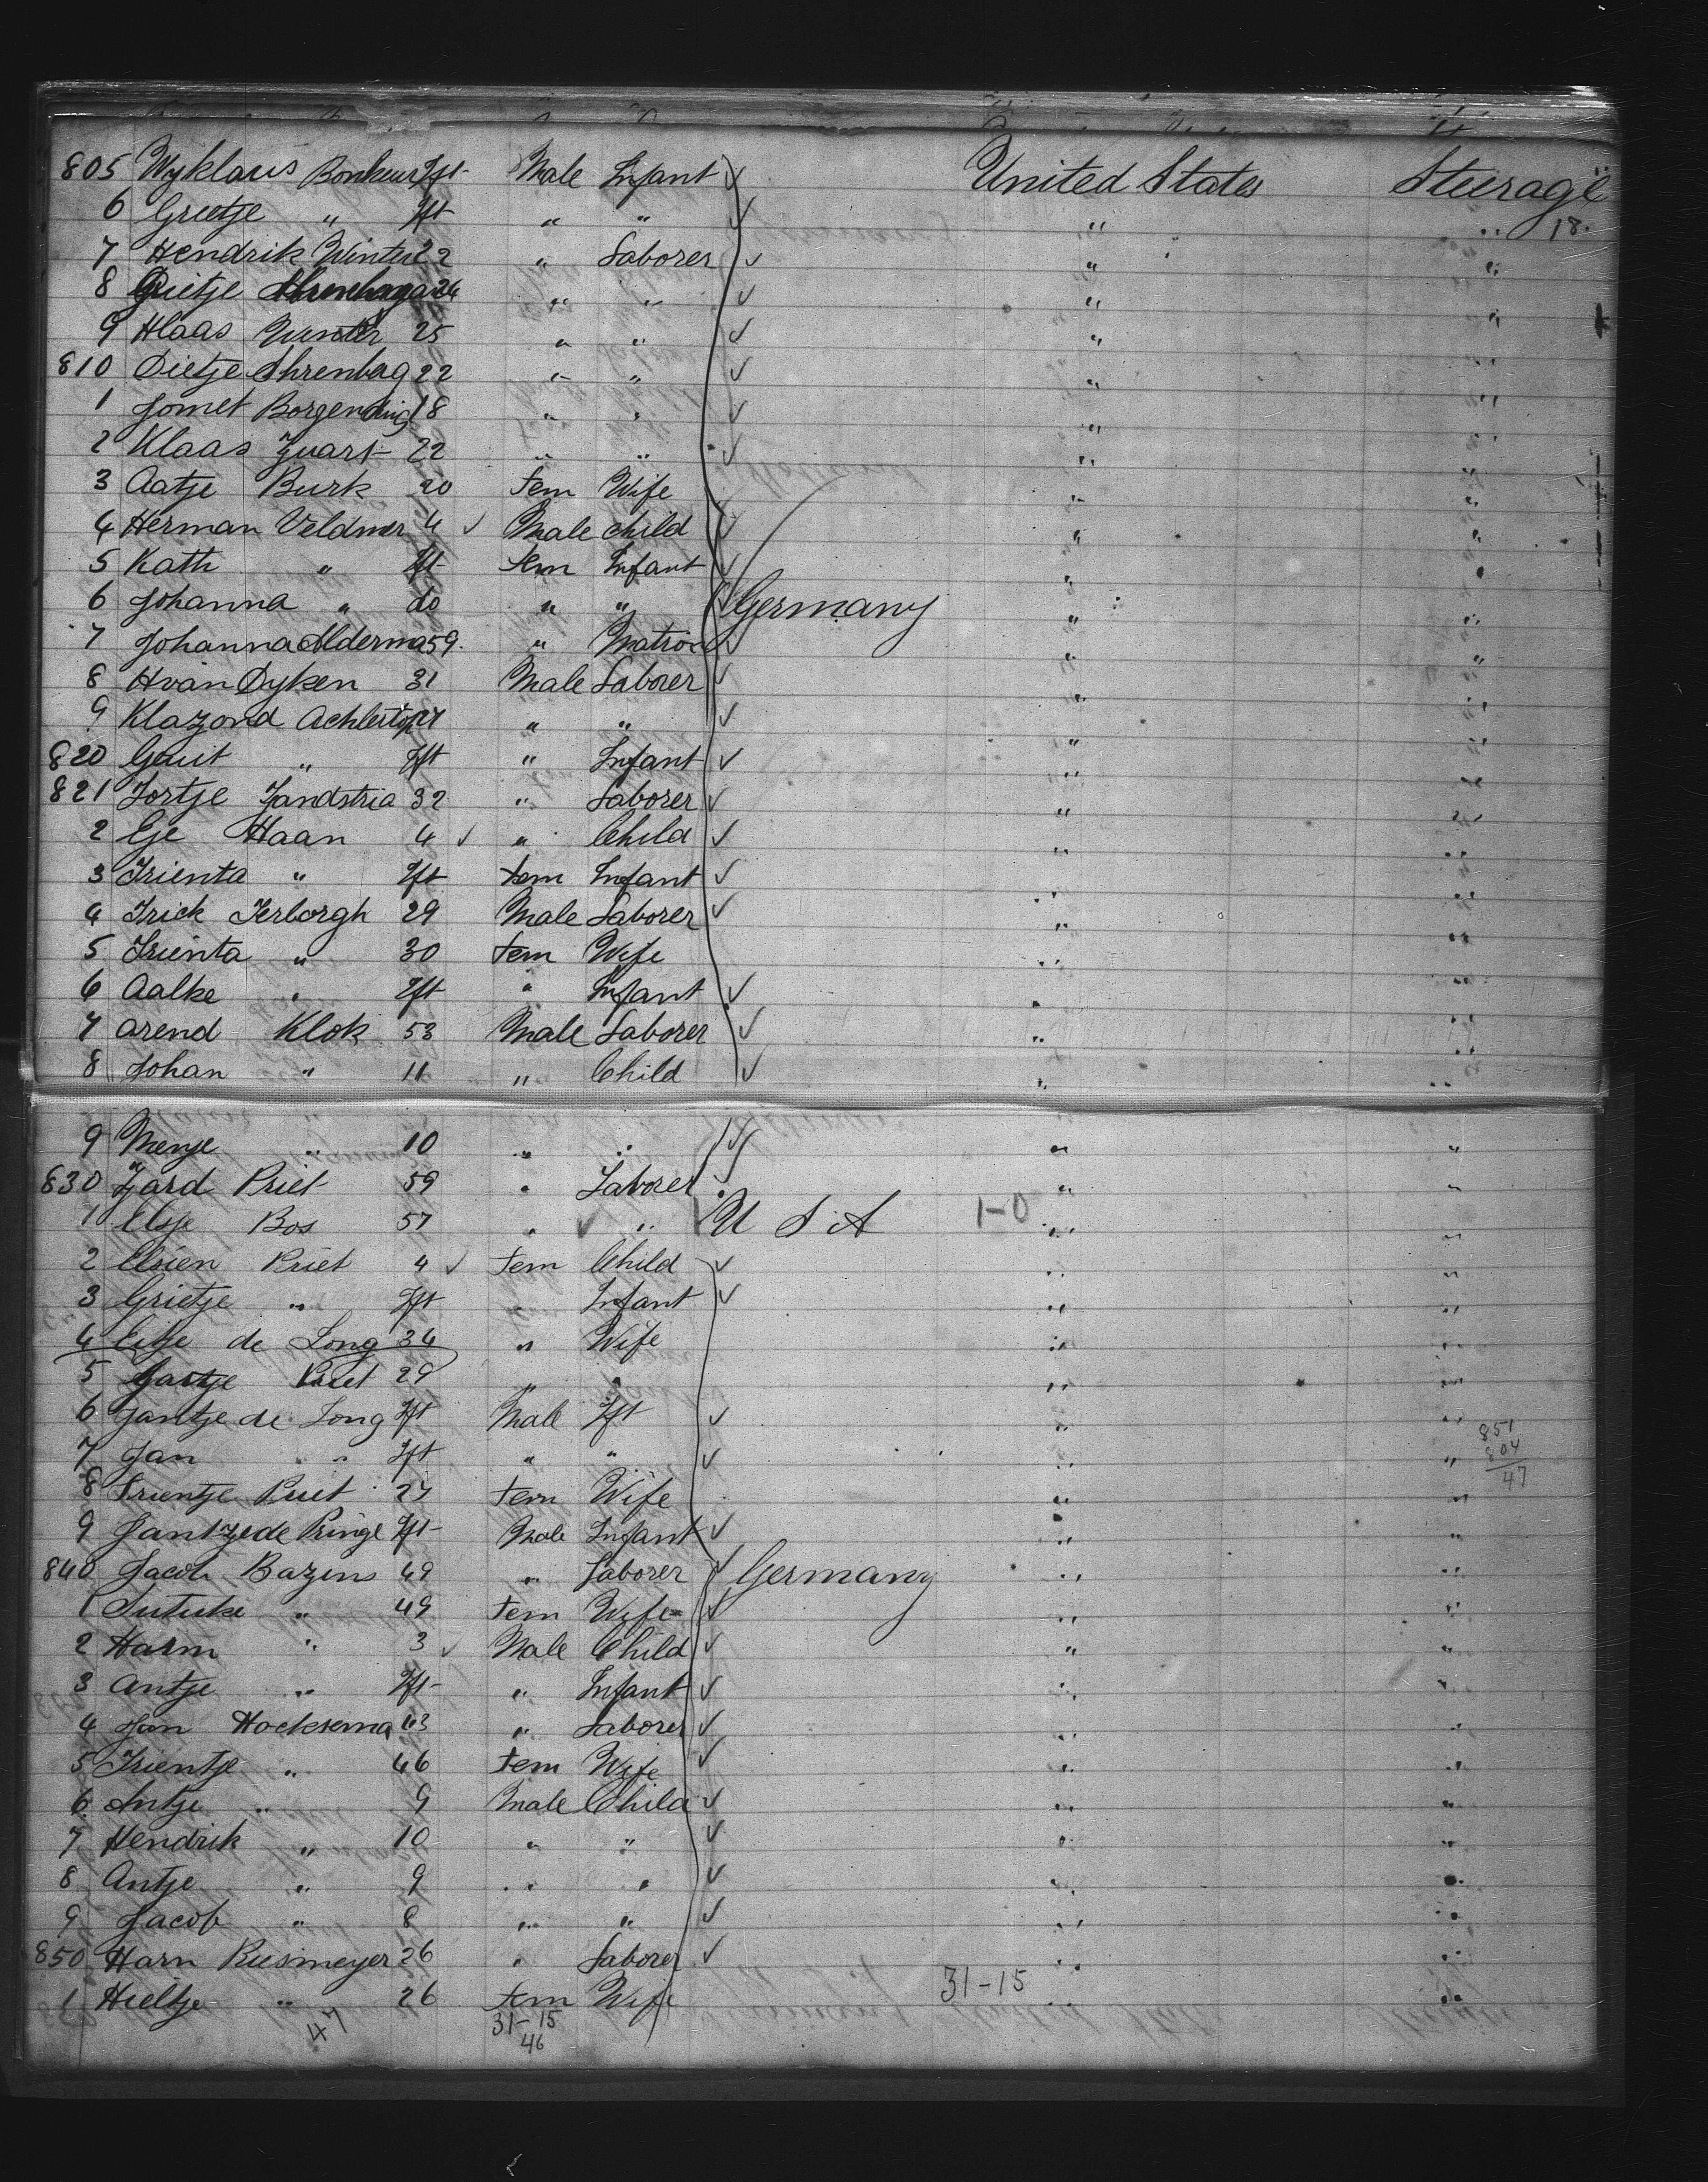 805 Wyklaus Bonkeur Ift Male Infant United States Steerage
6 Greetje " Ift " " " " 18.
7 Hendrik Winter 22 " Laborer " "
8 Gietje 24 " " " "
9 Klaas Winter 25 " " " "
810 Dietje Ahrenbag 22 " " " "
1 Jomet Borgending 18 " " " "
2 Klaas Zuart 22 " " " "
3 Aatje Burk 20 Fem Wife " "
4 Herman Veldmer 4 Male child " "
5 Kath " Ift Fem Infant " "
6 Johanna " do " " Germany " "
7 Johanna Alderma 59 " Matron " "
8 H van Dyken 31 Male Laborer " "
9 Klazond 27 " " " "
820 " Ift " Infant " "
821 Tortje Zandstria 32 " Laborer " "
2 Eje Haan 4 " Child " "
3 Trienta " Ift Fem Infant " "
4 Trick Terborgh 29 Male Laborer " "
5 Trienta " 30 Fem Wife " "
6 Aalke " Ift " Infant " "
7 Arend Klok 53 Male Laborer " "
8 Johan " 11 " Child " "
9 Menje " 10 " " " "
830 Zard Priet 59 " Laborer " "
1 Elsje Bos 57 " " U S A 1-0 " "
2 Elsien Priet 4 Fem Child " "
3 Grietje " Ift " Infant " "
4 Eitje de Long 34 " Wife " "
5 Priet 29 " " " "
6 Jantje de Long Ift Male Ift " "
7 Jan " " Ift " " " " 851
804
47
8 Trientje Priet 27 Fem Wife " "
9 Jantzede Pringe Ift Male Infant " "
840 Jacob Bazins 49 " Laborer Germany " "
1 " 49 Fem Wife " "
2 Harm " 3 Male Child " "
3 Antje " Ift " Infant " "
4 Jan Hoeksema 43 " Laborer " "
5 Trientje " 46 Fem Wife " "
6 Antje " 9 Male Child " "
7 Hendrik " 10 " " " "
8 Antje " 9 " " " "
9 Jacob " 8 " " " "
850 Harn Rusmeyer 26 " Laborer " "
1 Hieltje " 26 Fem Wife 31-15 " "
47 31-15
46